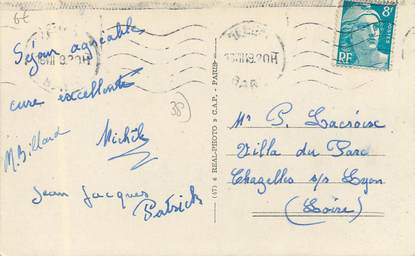 6€
Séjour agréable
cure excellente
M. Billard
Michèle
Jean Jacques
Patrick
38
(47) REAL-PHOTO C.A.P. - PARIS
8F
RF
Mr P. Lacroix
Villa du Parc
Chazelles s/s Lyon
(Loire)